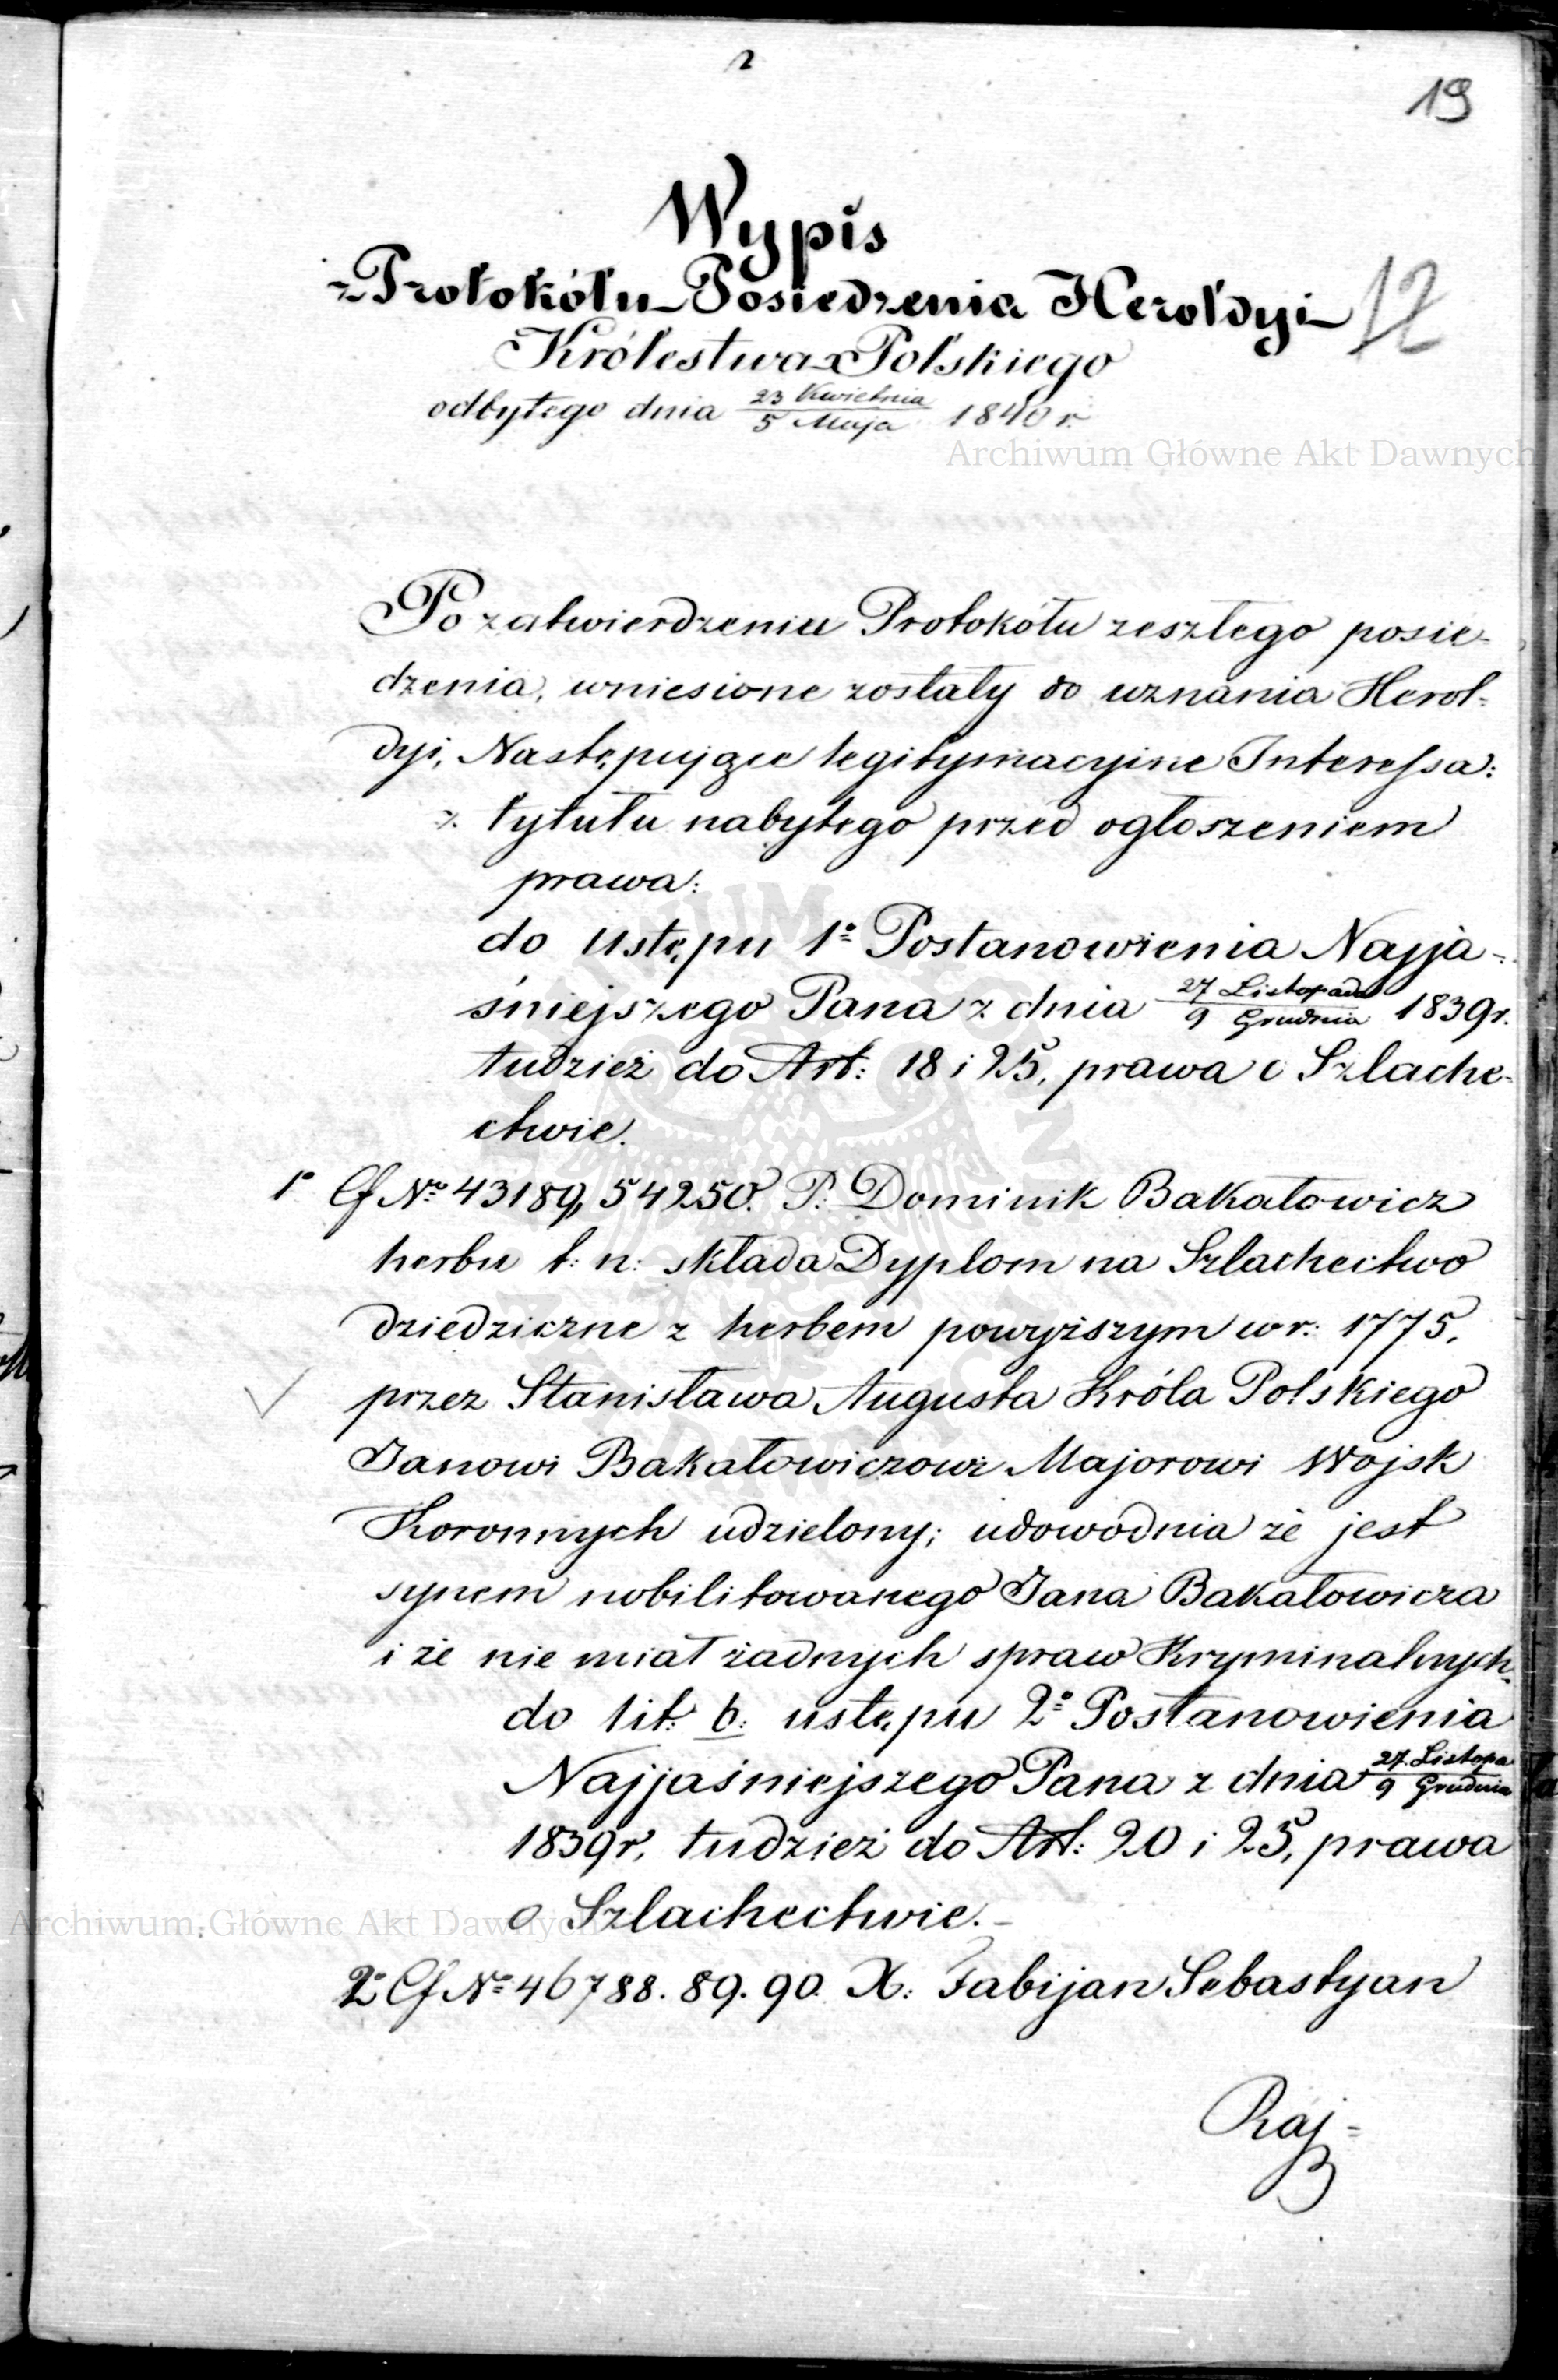 2
19
Wypis
z Protokółu Posiedzenia Heroldyi
12
Królestwa Polskiego
odbytego dnia 23 Kwietnia / 5 Maja 1840 r.
Archiwum Główne Akt Dawnych
Po zatwierdzeniu Protokółu zeszłego posie=
dzenia, wniesione zostały do uznania Herol=
dyi, Następujące legitymacyjne Interessa:
z. tytułu nabytego przed ogłoszeniem
prawa:
do ustępu 1º Postanowienia Najja=
śniejszego Pana z dnia 27 Listopada / 9 Grudnia 1839r.
tudzież do Art: 18 i 25, prawa o Szlache=
ctwie.
1º Cf Nº 43189, 54250. P. Dominik Bakałowicz
herbu t: n: składa Dyplom na Szlachectwo
dziedziczne z herbem powyższym w r: 1775,
przez Stanisława Augusta Króla Polskiego
Janowi Bakałowiczowi Majorowi Wojsk
Koronnych udzielony; udowodnia że jest
synem nobilitowanego Jana Bakałowicza
i że nie miał żadnych spraw Kryminalnych.
do lit: b: ustępu 2º Postanowienia
Najjaśniejszego Pana z dnia 27 Listopa / 9 Grudnia
1839r, tudzież do Art: 20 i 25, prawa
o Szlachectwie.-
Archiwum Główne Akt Dawnych
2º Cf Nº 46788. 89. 90. X: Fabijan Sebastyan
Raj=